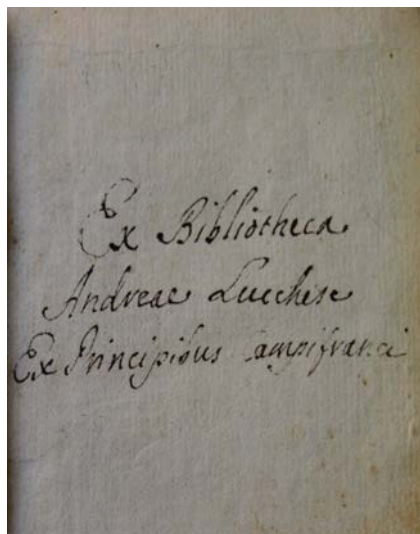 Ex Bibliotheca
Andreae Lucchese
Ex Principibus Campifranci